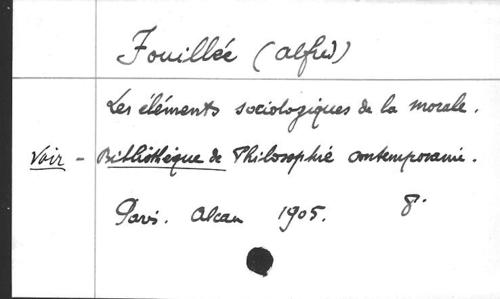 Fouillée (Alfred)
Les éléments sociologiques de la morale.
Voir - Bibliothèque de Philosophie contemporaine.
Paris. Alcan 1905. 8°.